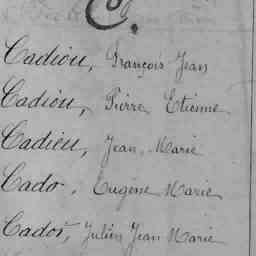 C.
Cadiou, François Jean
Cadiou, Pierre Etienne
Cadieu, Jean Marie
Cado, Eugène Marie
Cador, Julien Jean Marie